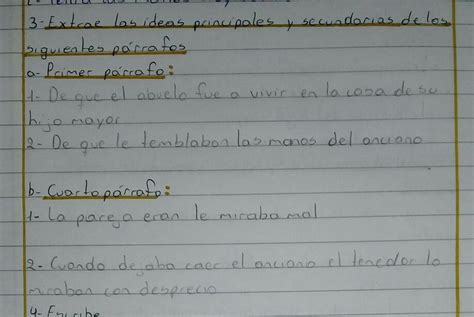 3-Extrae las ideas principales y secundarias de los
siguientes párrafos
a-Primer párrafo:
1- De que el abuelo fue a vivir en la casa de su
hijo mayor
2- De que le temblaban las manos del anciano
b- Cuarto párrafo:
1- La pareja eran le miraba mal
2- Cuando dejaba caer el anciano el tenedor lo
miraban con desprecio